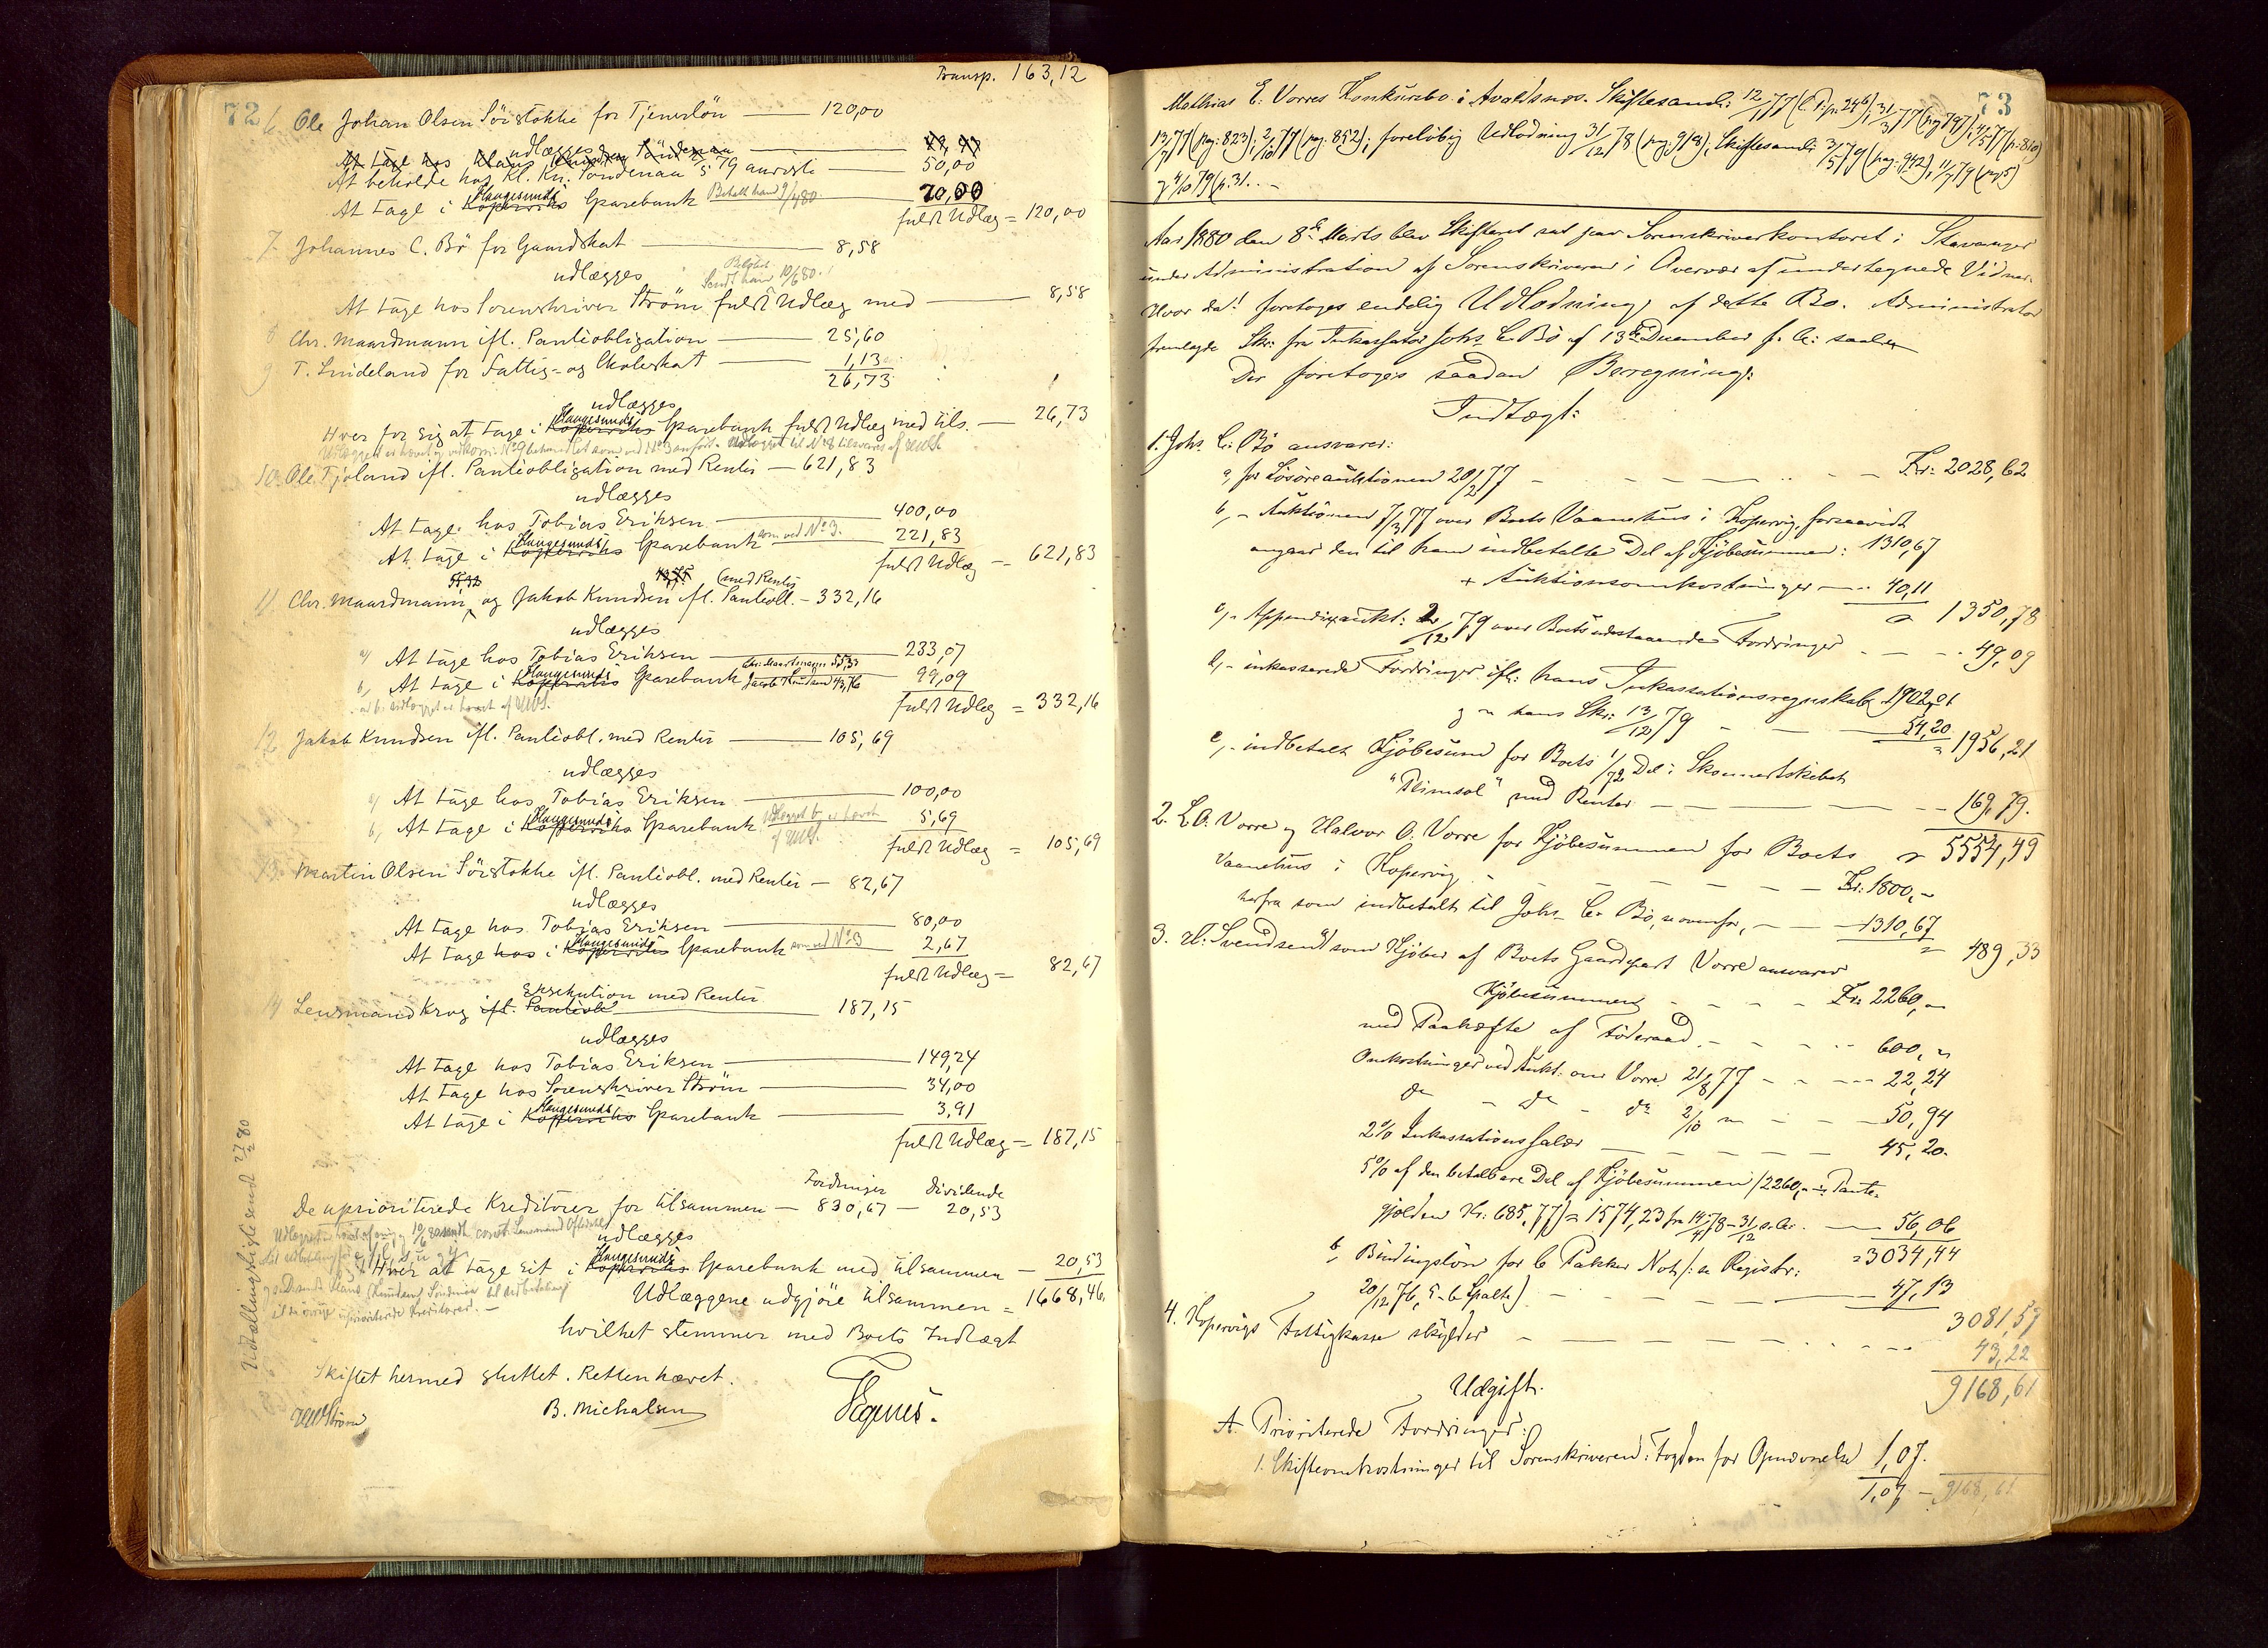 72
Transp. 163,12
6. Ole Johan Olsen Sörstokke for Tjenerlön — 120,00
udlægges
At tage hos Klaus Knudsen Söndenaa
At beholde hos Kl. Kn. Söndenaa 2/5 79 — 50,00
At tage i Koperviks Haugesunds Sparebank Betalt ham 9/4 80 — 70,00
fuldt Udlæg = 120,00
7. Johannes C. Bö for Gaardskat — 8,58
udlægges Beløbet
Sendt ham 10/6 80.
At tage hos Sorenskriver Ström fuldt Udlæg med — 8,58
8 Chr. Maardmann ifl. Panteobligation — 25,60
9 T. Lindeland for Fattig- og Skoleskat — 1,13
26,73
udlægges
Hver for sig at tage i Koperviks Haugesunds Sparebank fuldt Udlæg med tils. — 26,73
10. Ole Fjoland ifl. Panteobligation med Renter — 621,83
udlægges
At tage hos Tobias Eriksen — 400,00
At tage i Koperviks Haugesunds Sparebank som ved No 3. — 221,83
fuldt Udlæg — 621,83
55,32 (med Renter
11 Chr. Maardmann og Jakob Knudsen ifl. Panteobl. — 332,16
udlægges
a) At tage hos Tobias Eriksen — 233,07
b, At tage i Koperviks Haugesunds Sparebank Chr. Maardmann 55,33 Jacob Knudsen 43,76 — 99,09
fuldt Udlæg = 332,16
12 Jakob Knudsen ifl. Panteobl. med Renter — 105,69
udlægges
a) At tage hos Tobias Eriksen — 100,00
b, At tage i Koperviks Haugesunds Sparebank Udlægget b, er hævet — 5,69
fuldt Udlæg = 105,69
13. Martin Olsen Sörstokke ifl. Panteobl. med Renter — 82,67
udlægges
At tage hos Tobias Eriksen — 80,00
At tage hos i Koperviks Haugesunds Sparebank som ved No 3 — 2,67
fuldt Udlæg = 82,67
Exekution med Renter
14 Lensmand Krog ifl. Panteobl — 187,15
udlægges
At tage hos Tobias Eriksen — 149,24
At tage hos Sorenskriver Ström — 34,00
At tage i Koperviks Haugesunds Sparebank — 3,91
fuldt Udlæg = 187,15
Fordringer Dividende
De uprioriterede Kreditorer for tilsammen — 830,67 — 20,53
udlægges
Hver at tage sit i Koperviks Haugesunds Sparebank med tilsammen — 20,53
Udlæggene udgjöre tilsammen = 1668,46.
hvilket stemmer med Boets Indtægt
Skiftet hermed sluttet. Retten hævet.
B. Michalsen
73
Mathias E. Vorres Konkursbo i Avaldsnæs. Skiftesaml: 12/1 77
13/7 77 (pag: 823); 2/10 77 (pag. 852); foreløbig Udlodning 31/12 78 (pag. 918), Skiftesaml. 3/5 79 (pag. 942), 11/7 79 (pag 5)
og 4/10 79 (p. 31. . —
Aar 1880 den 8de Marts blev Skifteret sat paa Sorenskriverkontoret i Stavanger
under Administration af Sorenskriveren i Overvær af undertegnede Vidner.
Hvor da! foretoges endelig Udlodning af dette Bo. Administrator
fremlagde Skr: fra Inkassator Johs. C. Bö af 13de December f. A: saal.
Der foretoges saadan Beregning:
Indtægt:
1. Johs. C. Bö ansvarer:
a, for Lösöreauktionen 20/2 77 — Kr: 2028,62
b, – Auktionen 7/3 77 over Boets Vaanehus i Kopervig, forsaavidt
angaar den til ham indbetalte Del af Kjöbesummen: 1310,67
+ Auktionsomkostninger — 40,11
= 1350,78
c, – Appendixaukt: 2/12 79 over Boets udestaaende Fordringer — 49,09
d, – inkasserede Fordringer ifl: hans Inkassationsregnskab 1902,01
og – hans Skr: 13/12 79 — 54,20
= 1956,21
e, – indbetalt Kjöbesum for Boets 1/72 Del i Skonnertskibet
"Plimsol" med Renter — 169,79.
= 5554,49
2. L. O. Vorre og Halvor O. Vorre for Kjöbesummen for Boets
Vaanehus i Kopervig — Kr: 1800,–
herfra som indbetalt til Johs. C. Bö, ovenfor, — 1310,67
= 489,33
3. H: Svendsen som Kjöber af Boets Gaardpart Vorre ansvarer
Kjöbesummen — Kr. 2260,–
med Paahefte af Föderaad — 600,–
Omkostninger ved Aukt. over Vorre 21/8 77 — 22,24
do – do – do 2/10 – — 50,94
2% Inkassationssalær — 45,20.
5% af den betalbare Del af Kjöbesummen (2260,– ÷ Pante-
gjelden Kr: 685,77) = 1574,23 fra 14/4 78 – 31/12 s. A. — 56,06
= 3034,44
b, Bindingslön for 6 Pakker Not (se Registr:
20/12 76, 5–6 Spalte) — 47,13
3081,57
4. Kopervigs Fattigkasse skylder — 43,22
9168,61
Udgift.
A. Prioriterede Fordringer:
1. Skifteomkostninger til Sorenskriveren: Fogden for Opnævnelse 1,07.
1,07 – 9168,61